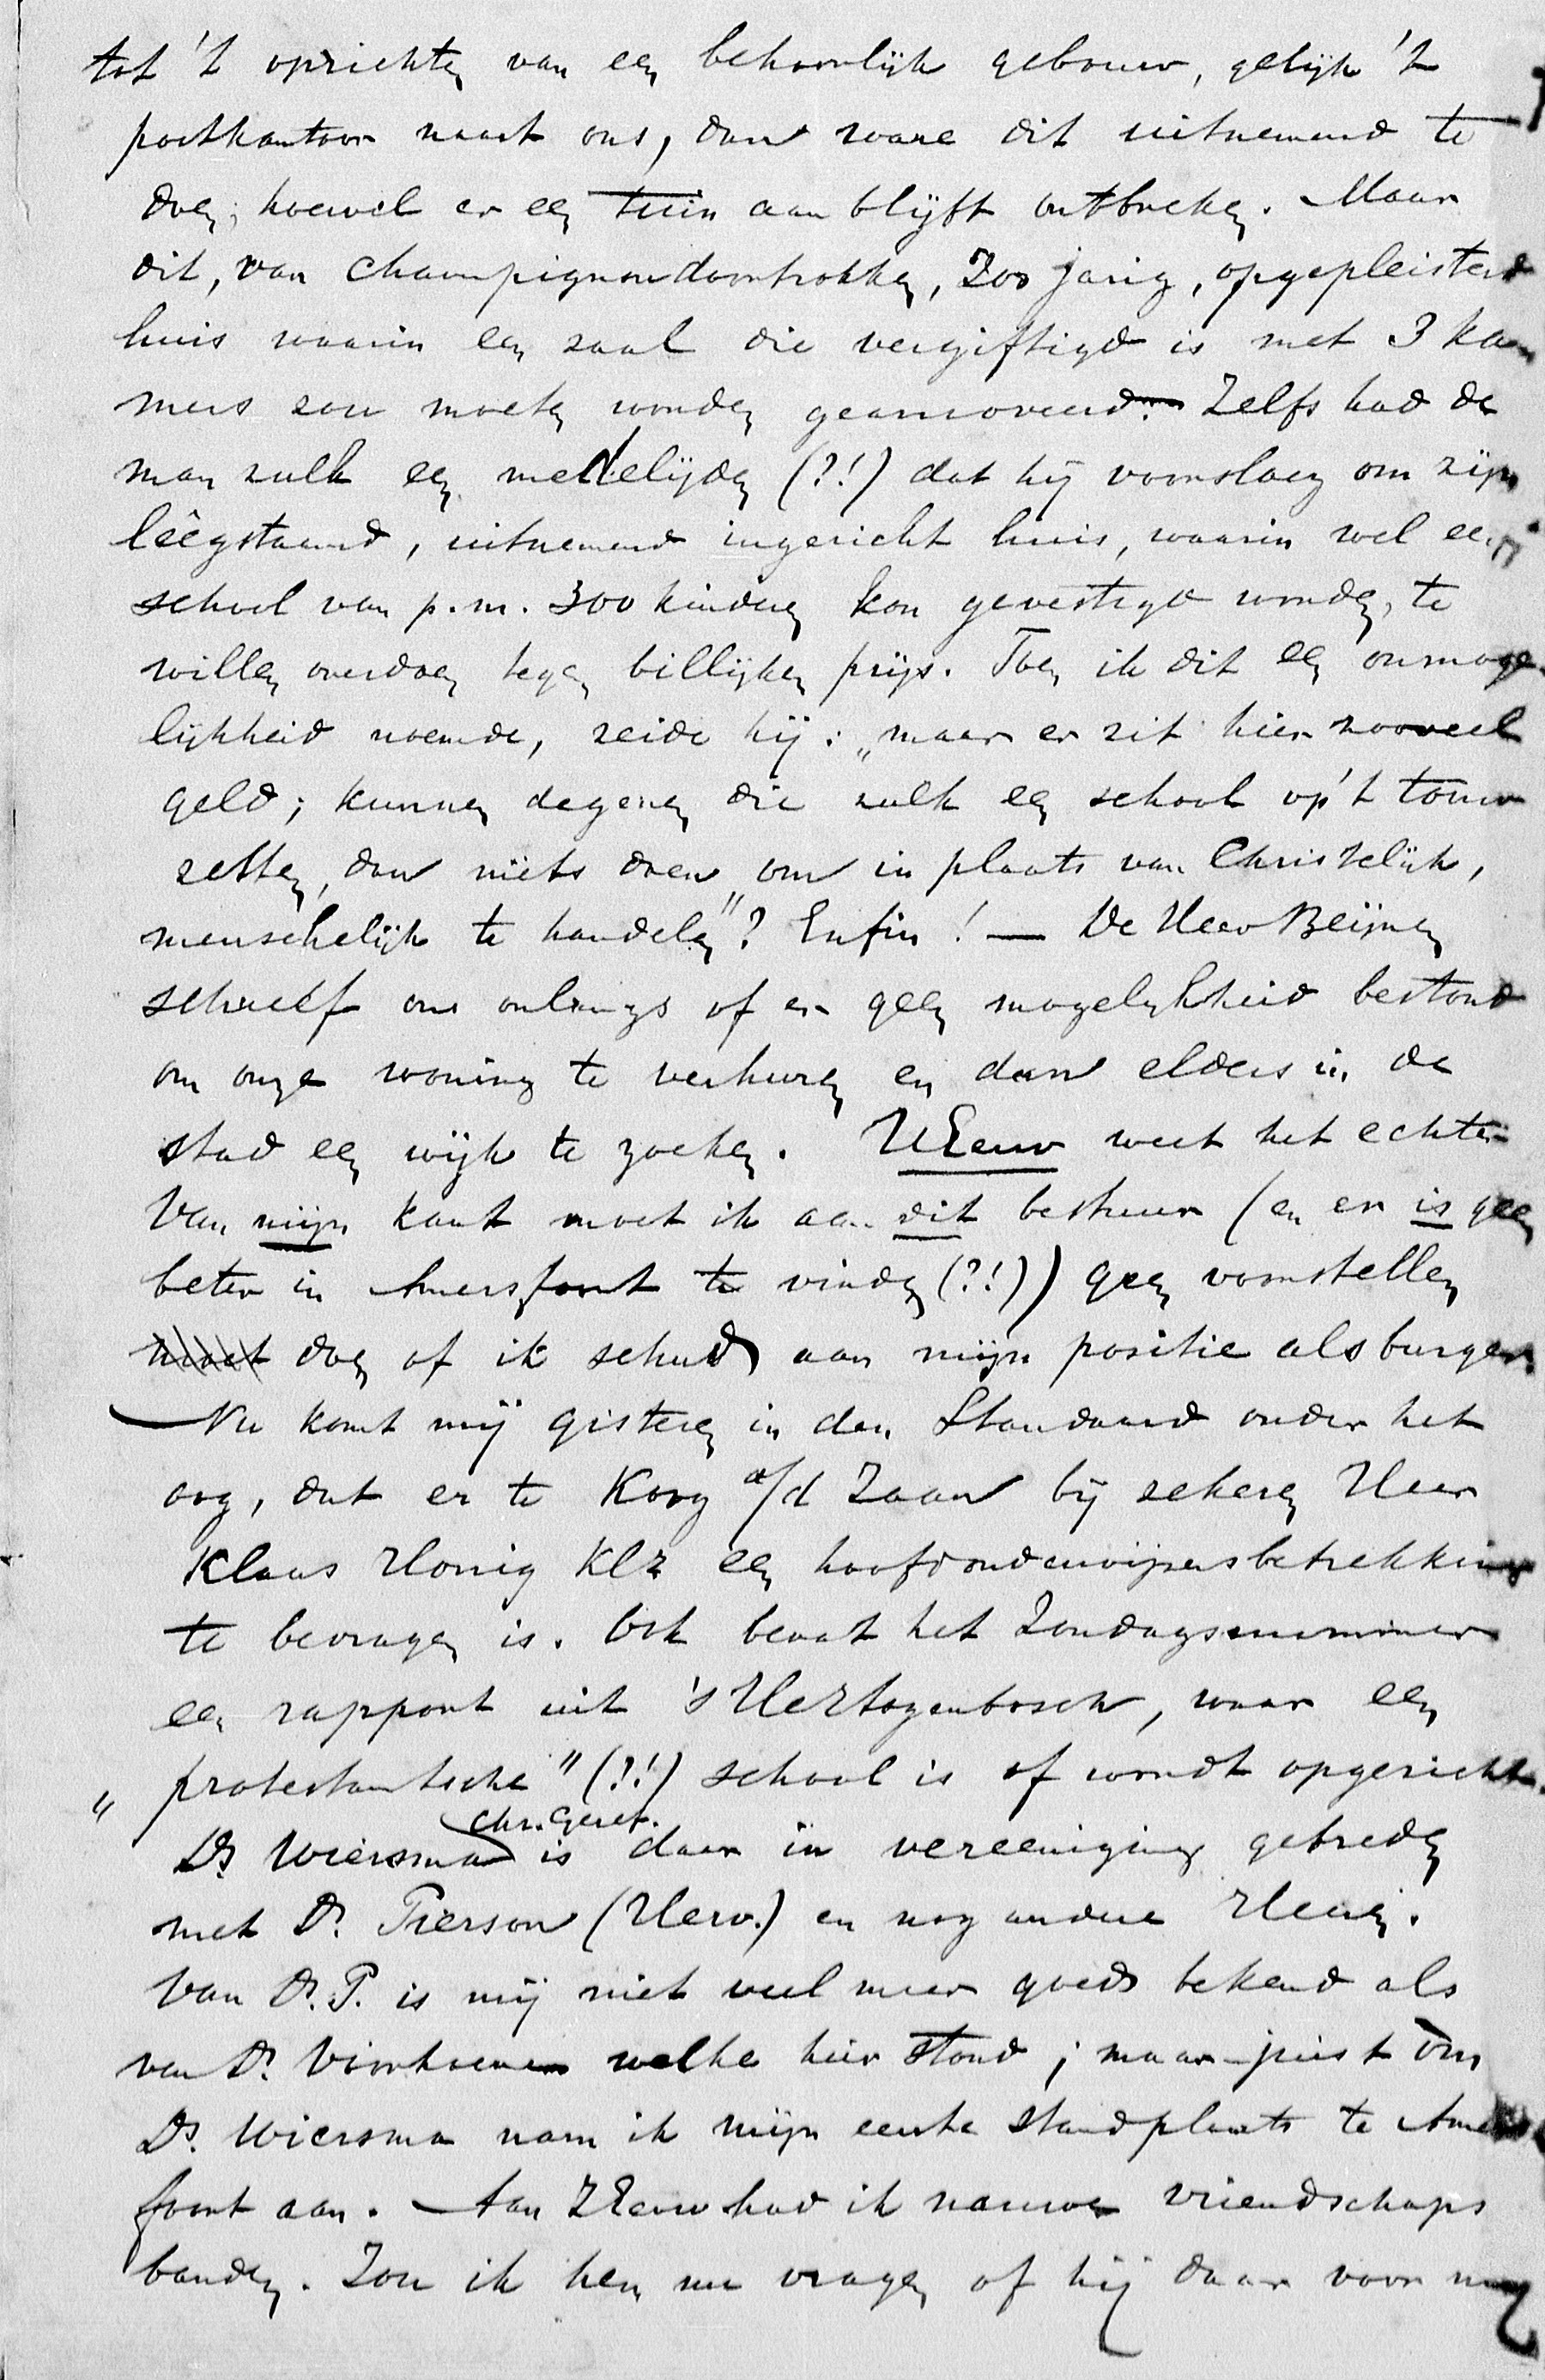 tot 't oprichten van een behoorlijk gebouw, gelijk 't
postkantoor naast ons, dan ware dit uitnemend te
doen, hoewel er een tuin aan blijft ontbreken. Maar
dit, van champignon doortrokken, 200 jarig, opgepleisterd
huis waarin een zaal die vergiftigd is met 3 ka-
mers zou moeten worden geamoveerd. Zelfs had de
man zulk een medelijden (?!) dat hij voorsloeg om zijn
leêgstaand, uitnemend ingericht huis, waarin wel een
school van p.m. 300 kinderen kon gevestigd worden, te
willen overdoen tegen billijken prijs. Toen ik dit een onmoge-
lijkheid noemde, zeide hij: „maar er zit hier zooveel
geld; kunnen degenen die zulk een school op 't touw
zetten, dan niets doen om in plaats van Christelijk,
menschelijk te handelen"? Enfin! — De Heer Beijnen
schreef ons onlangs of er geen mogelijkheid bestond
om onze woning te verhuren en dan elders in de
stad een wijk te zoeken. UEeuw weet het echter
Van mijn kant moet ik aan dit bestuur (en er is geen
beter in Amersfoort te vinden (?!)) geen voorstellen
moet doen of ik schud aan mijn positie als burger.
— Nu komt mij gisteren in den Standaard onder het
oog, dat er te Koog a/d Zaan bij zekeren Heer
Klaas Honig Klz een hoofdonderwijzersbetrekking
te bevragen is. Ook bevat het Zondagsnummer
een rapport uit 's Hertogenbosch, waar een
„protestantsche" (?!) school is of wordt opgericht.
chr. geref.
Ds Wiersma is daar in vereeniging getreden
met Ds. Pierson (Herv.) en nog andere Heeren.
Van Ds. P. is mij niet veel meer goeds bekend als
van Ds. Voorhoeve welke hier stond; maar juist om
Ds. Wiersma nam ik mijn eerste standplaats te Amers-
foort aan. — Aan ZEeuw had ik nauwe vriendschaps
banden. Zou ik hem nu vragen of hij daar voor mij